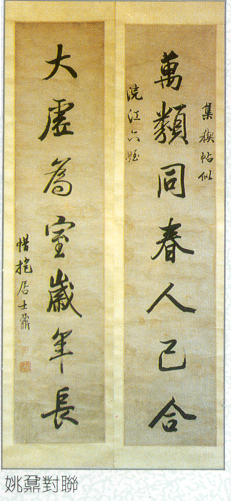 集禊帖似
萬類同春人己合
浣江六姪
大虛為室歲年長
惜抱居士鼐
姚鼐對聯